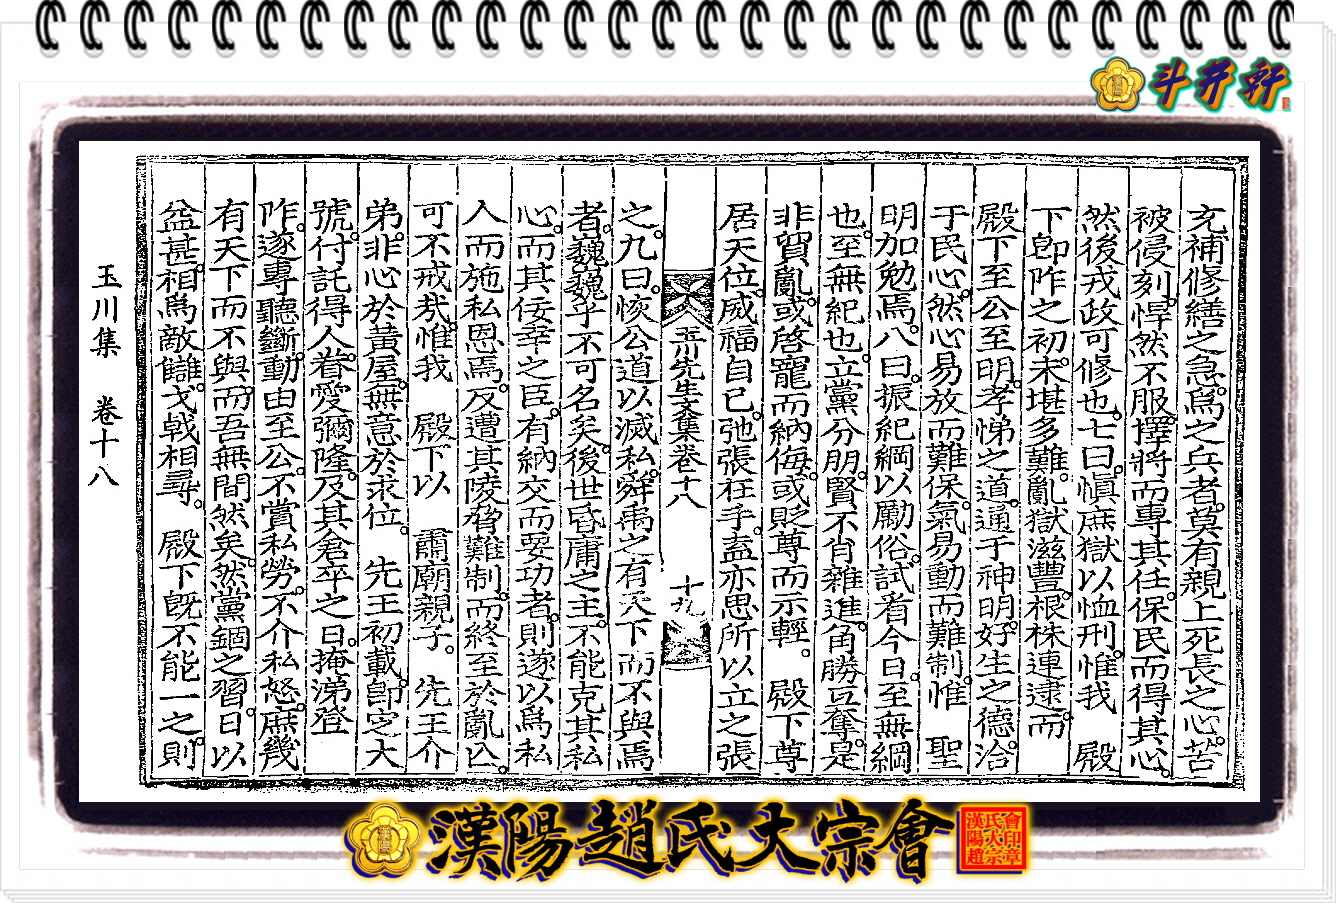 斗井軒
充補修繕之急爲之兵者莫有親上死長之心苦
被侵刻悍然不服擇將而專其任保民而得其心
然後戎政可修也七曰愼庶獄以恤刑惟我 殿
下卽阼之初未堪多難亂獄滋豐根株連逮而
殿下至公至明孝悌之道通于神明好生之德洽
于民心然心易放而難保氣易動而難制惟 聖
明加勉焉八曰振紀綱以勵俗試看今日至無綱
也至無紀也立黨分朋賢不肖雜進角勝互奪是
非貿亂或啓寵而納侮或貶尊而示輕 殿下尊
居天位威福自己弛張在手盍亦思所以立之張
玉川先生文集卷十八 十九
之九曰恢公道以滅私舜禹之有天下而不與焉
者巍巍乎不可名矣後世昏庸之主不能克其私
心而其佞幸之臣有納交而要功者則遂以爲私
人而施私恩焉反遭其陵脅難制而終至於亂亡
可不戒哉惟我 殿下以 肅廟親子 先王介
弟非心於黃屋無意於求位 先王初載卽定大
號付託得人眷愛彌隆及其倉卒之日掩涕登
阼遂專聽斷動由至公不賞私勞不介私怒庶幾
有天下而不與而吾無間然矣然黨錮之習日以
益甚相爲敵讎戈戟相尋 殿下旣不能一之則
玉川集 卷十八
漢陽趙氏大宗會
漢陽趙氏大宗會印章